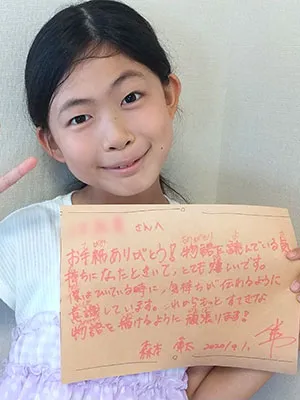 さんへ
お手紙ありがとう！物語を読んでいる気
持ちになったときいて、とても嬉しいです。
僕はひいている時に、気持ちが伝わるように
意識しています。これからもっとすてきな
物語を描けるように頑張ります！
2020/9/1.